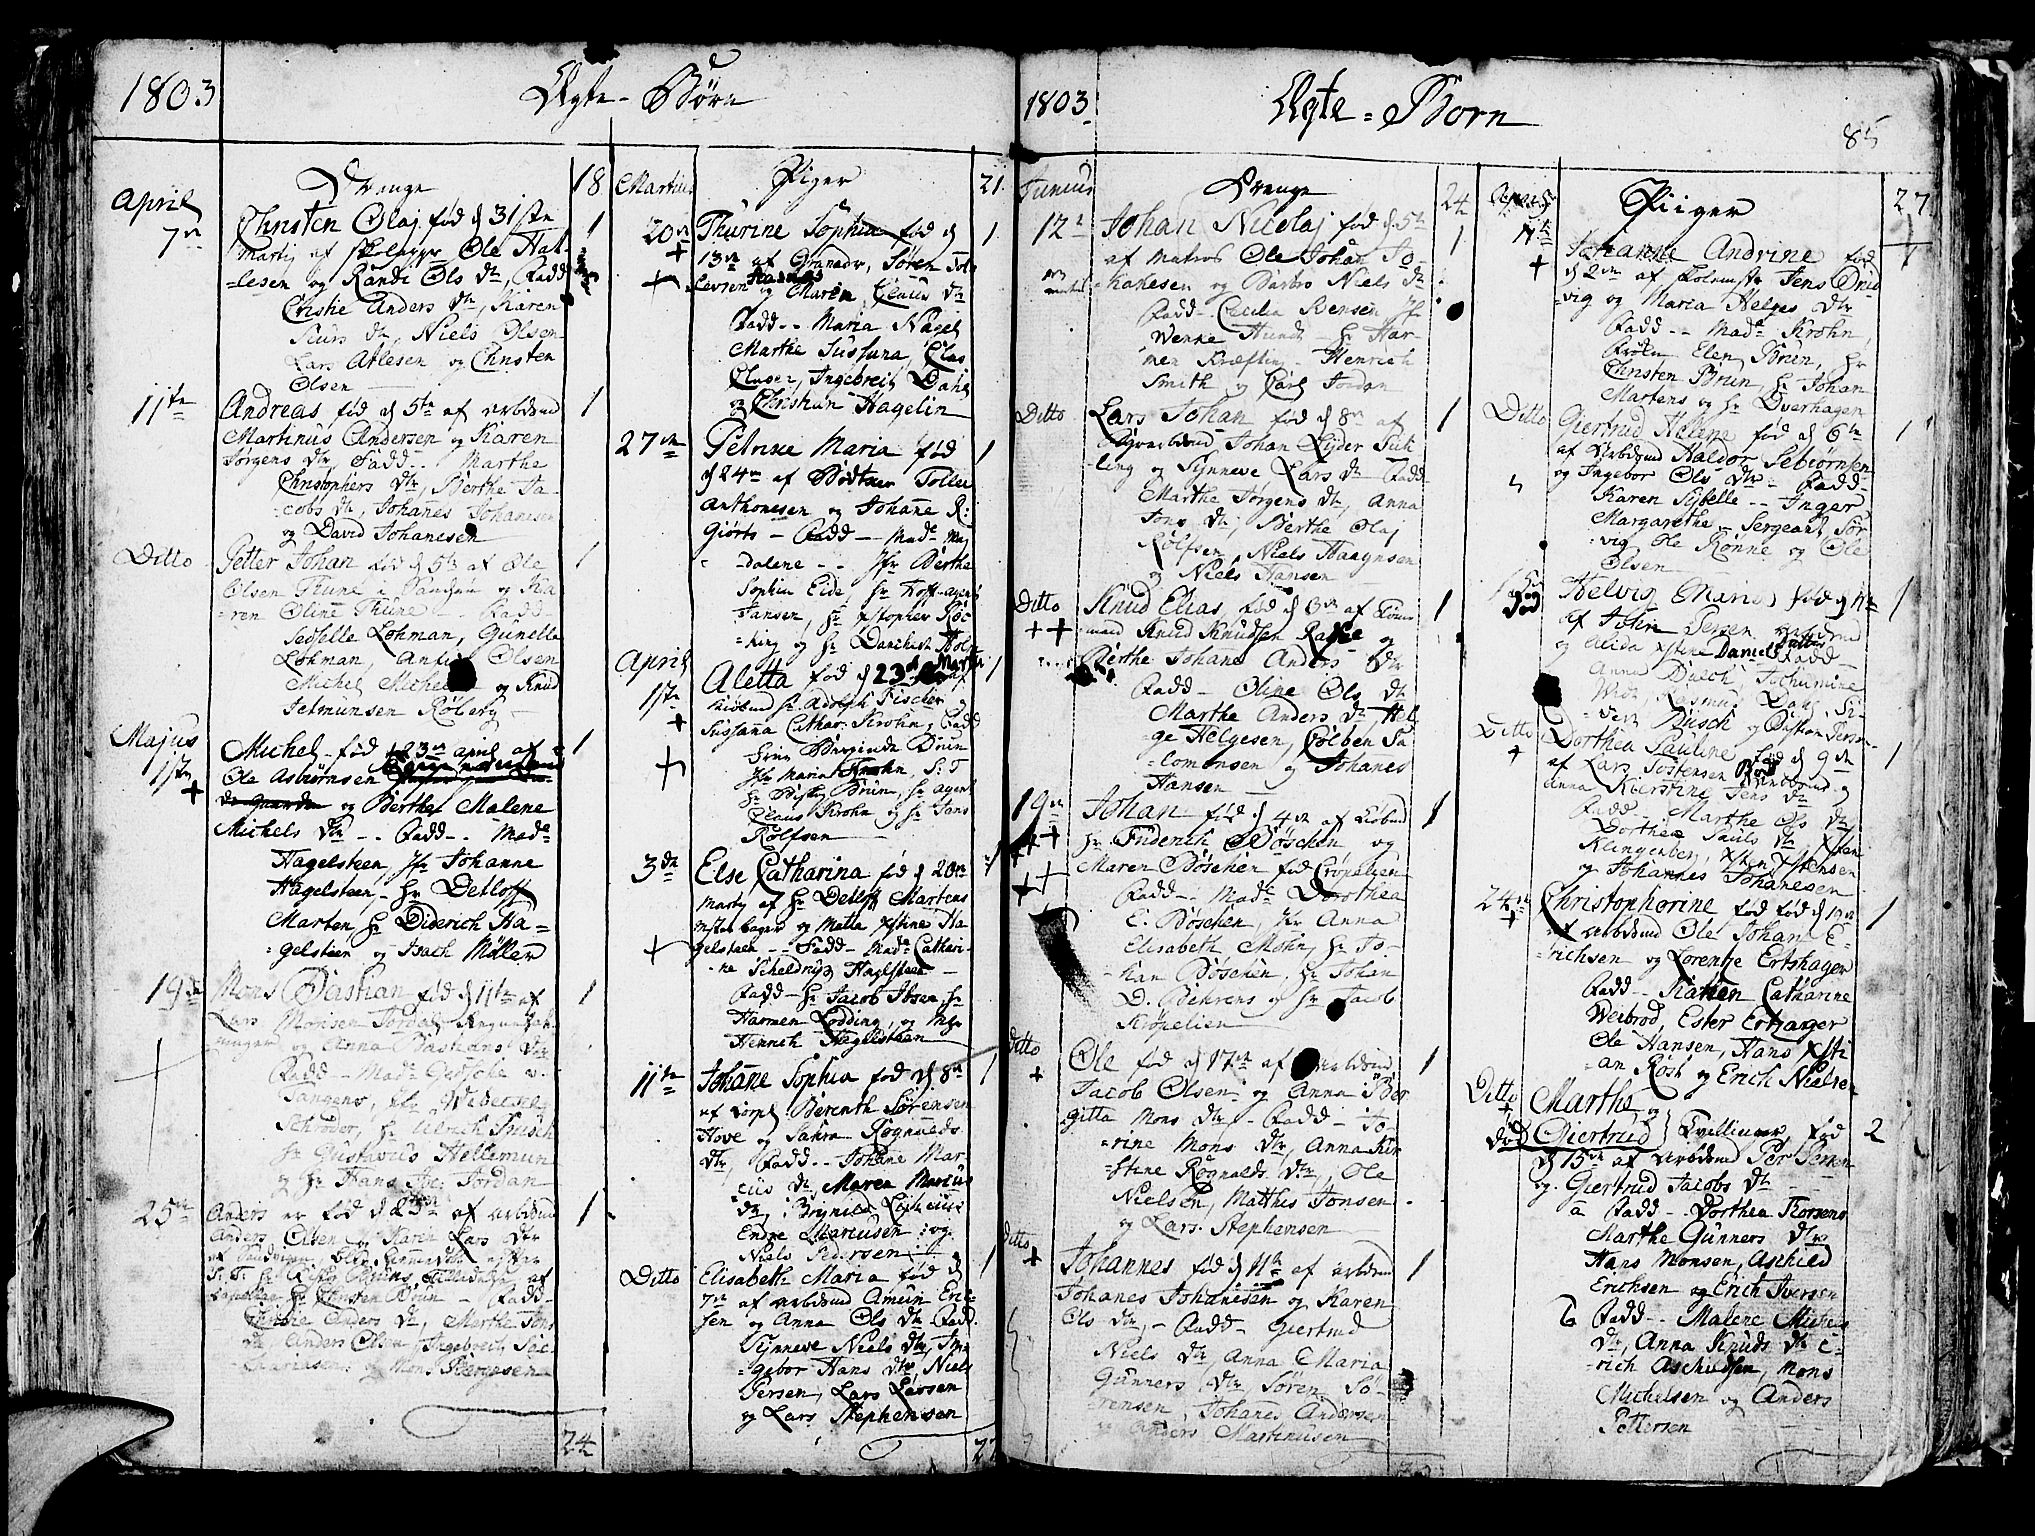 1803
Ægte-Børn
Drenge
18
April
7de
Christen Olaj fød d 31ste
1
Martij af Ole Hal-
=lesen og Randi Ols dtr, Fadd
Christie Anders dtr, Karen
dtr, Niels Olsen
Lars Atlesen og Christen
Olsen
11te
Andreas fød d 5te af arbdmd
1
Martinus Andersen og Karen
Jørgens dtr, Fadd. Marthe
Christophers dtr, Berthe Ja-
=cobs dtr, Johanes Johanesen
og David Johanesen
Ditto
Petter Johan fød d 5te af Ole
1
Olsen Thune i og Ka
ren Oline Thune Fadd-
Sedselle Lohman, Gunelle
Lohman, Olsen
Michel og Knud
Jetmunsen Roberg
Majus
1ste
+
Michel fød 23de april af
1
Ole Asbiørnsen
og Berthe Malene
Michels dtr - - Fadd-. Made
Hagelsteen, Jfr Johanne
Hagelsteen, Hr Detloff
Marten, Hr Diderich Ha=
=gelsteen og Isach Møller
19de
Mons Bastian fød d 11te af
1
Lars Monsen
og Anna Bastians dtr
Fadd - Made
Tangens, Jfr
Schrøder, Hr Ulrich
Hr Gustavus Hellemun
og Hr Hans Jordan
25de
Anders er fød d 23de af arbdmd
1
Anders Olsen og Karen Lars dtr
Bruns, Tilladelse af
Hr Christen Brun - Fadd-
Christie Anders dtr, Marthe Jons
dtr, Anders Olsen, Ingebreit
og Mons Børgesen
24
Martius
Piger
21
20de
+
Thurine Sophia fød d
1
13de af Granadr, Søren Tol-
levsen og Maren Claus dtr
Fadd - - Maria Nagel
Marthe Sussana, Clas
Claser, Ingebreit Dahl
og Christian Hagelin
27de
Petrine Maria fød
1
d 24de af Bødtner Tolle
Anthonesen og Johane R:
Giørts - Fadd - Made Mag
dalene - - Jfr Berthe
Sophia Eide, Hr Hoff-agent
Jansen, Hr Christopher
=king og Hr Danchert
April
1ste
+
Aletta fød d 23de Martij af
1
kiøbmd Hr Adolph Fischer og
Sussana Cathar. Krohn, Fadd
Frue Burginda Brun
Jfr Maria Krohn, S: T
Hr Bisk Brun, Hr agent
Claus Krohn og Hr Jans
Rolfsen
3de
Else Catharina fød d 20de
1
Martij af Hr Detloff Martens
mster bager og Metta Xstine Ha
gelsteen - - Fadd - Made Cathari-
=ne Hagelsteen -
Fadd - Hr Jacob Ibsen Hr
Harmen Lodding, og
Henrich Hagelsteen
11te
Johane Sophia fød d 8de
1
af Corpl Berenth Sørensen
Hove og Sakra Rognalds
dtr, Fadd - - Johane Mar-
=cus dtr, Maren Marcus
dtr, Brynild
Endre Marcusen :og:
Niels Pedersen
Ditto
Elisabeth Maria fød d
1
7de af arbdmd Amein Eric-
sen og Anna Ols dtr Fadd
Synneve Niels dtr, In-
=gebor Hans dtr, Niels
Persen, Lars Larsen
og Lars Stephensen
27
1803
Ægte=Børn
85
Junius
Drenge
24
12te
Johan Nicolaj fød d 5te
1
af matros Ole Johan Jo-
=hanesen og Barbro Niels dtr
Fadd - Cecilia Rensen Jfr
Wenke Hundt - Hr Har-
men Kræfting - Henrich
Smith og Carl Jordan
Ditto
Lars Johan fød d 8de af
1
Johan Lyder
=ling og Synneve Lars dtr Fadd-
Marthe Jørgens dtr, Anna
Jons dtr, Berthe Olaj
Rolfsen, Niels Haagnsen
og Niels Hansen
Ditto
++
Knud Elias, fød d 6te af
1
=mand Knud Knudsen og
Berthe Johane Anders dtr
Fadd - Oline Ols dtr
Marthe Anders dtr, Hel
ge Helgesen, Colben Sa
=lomonsen og Johanes
Hansen
19de
++
Johan fød d 4de af kiøbmd
1
Hr Friderich Bøschen og
Maren Bøschen fød Crøpelien
Fadd - Made Dorothea
E: Bøschen, Jfr Anna
Elisabeth Mohn, Hr Jo-
han Bøschen, Hr Johan
D. Behrens og Hr Jacob
Krøpelien
Ditto
+
Ole fød d 17de af arbdmd
1
Jacob Olsen og Anna Ber
gitta Mons dtr - Fadd - To-
=rine Mons dtr, Anna Kir
=stine Rognalds dtr, Ole
Nielsen, Matthis Jonsen
og Lars Stephensen
Ditto
+
Johannes fød d 11te af arbdmd
1
Johanes Johanesen og Karen
Ols dtr, - Fadd - Giertrud
Niels dtr, Anna Maria
Gunners dtr, Søren Sø-
=rensen, Johanes Andersen
og Anders Martinusen
Piiger
27
+
Johanne Andrine fød
1
d 2de af Skolemstr Jens
=vig og Maria Helges dtr
Fadd - - Made Krohn
Frøln Elen Brun, Hr
Christen Brun, Hr Johan
Martens og Hr Overhagen
Ditto
Giertrud Helene fød d 6te
1
af Arbdmd Haldor Sebiørnsen
og Ingebor Ols dtr - Fadd-
Karen Sisselle - - Inger
Margarethe - Sergeant Sør
=vig Ole Rønne og Ole
Olsen
død
Helvig Maria fød d 11te
1
af John Persen arbdmd
og Alida Xstine Daniels Datter
Fadd -
Anna Balch
Rasmus Dahl
Busch og Bastian Person-
Ditto
+
Dorthea Pauline fød d 9de
1
af Lars Tostensen arbdmd og
Anna Kierstine Jens dtr
Fadd - Marthe Ols dtr
Dorthea Pauls dtr
Klingenberg, Xsten Xstensen
og Johannes Johanesen
24de
+
Christophorine fød fød d 19de
1
af arbdmd Ole Johan E-
=richsen og Lorentze Ertshager
Fadd - - Karen Catharine
Weibrod, Ester Ertzager
Ole Hansen, Hans Xsti
=an Røst og Erich Nielsen
Ditto
+
død
Marthe og
Giertrud } Tvillinger fød
2
d 15de af arbdmd Per Persen
og Giertrud Jacobs dtr
a Fadd - Dorthea Korsens
Marthe Gunners dtr
Hans Monsen, Aschild
Erichsen og Erich Iversen
b Fadd - - Malene Michels
dtr, Anna Knuds dtr E-
=rich Aschildsen, Mons
Michelsen og Anders
Pettersen